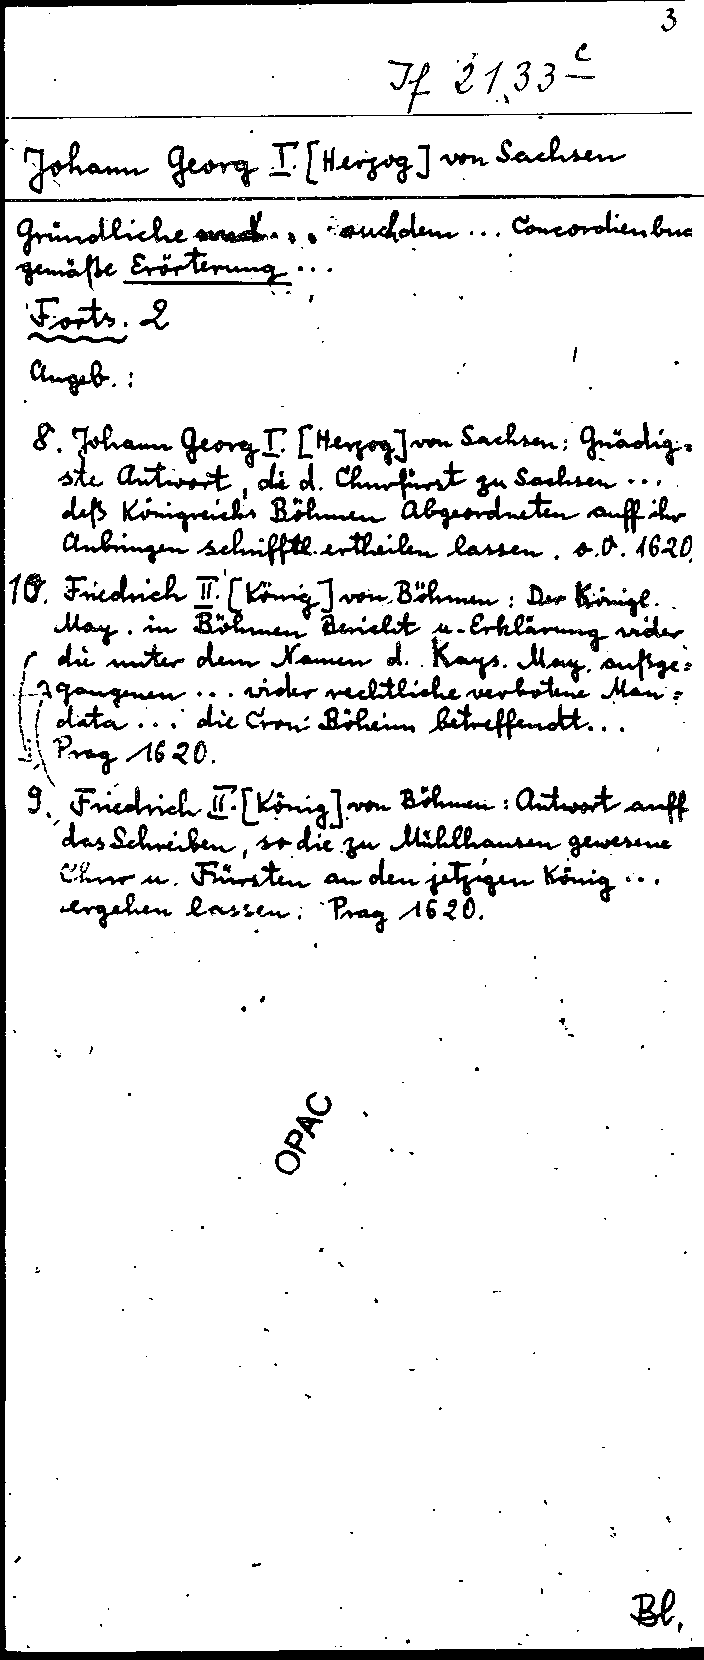 3
If 2133 c
Johann Georg I. [Herzog] von Sachsen
Gründliche ... auch dem ... Concordienbuc
gemäße Erörterung ...
Forts. 2
Angeb. :
8. Johann Georg I. [Herzog] von Sachsen: Gnädig=
ste Antwort, die d. Churfürst zu Sachsen ...
deß Königreichs Böhmen Abgeordneten auff ihr
Anbringen schrifftl. ertheilen lassen. o.O. 1620.
10. Friedrich II. [König] von Böhmen: Der Königl.
May. in Böhmen Bericht u. Erklärung wider
die unter dem Namen d. Kays. May. außge=
gangenen ... wider rechtliche verbotene Man=
data ... die Cron Böheim betreffendt ...
Prag 1620.
9. Friedrich II. [König] von Böhmen: Antwort auff
das Schreiben, so die zu Mühlhausen gewesene
Chur u. Fürsten an den jetzigen König ...
ergehen lassen. Prag 1620.
OPAC
Bl.